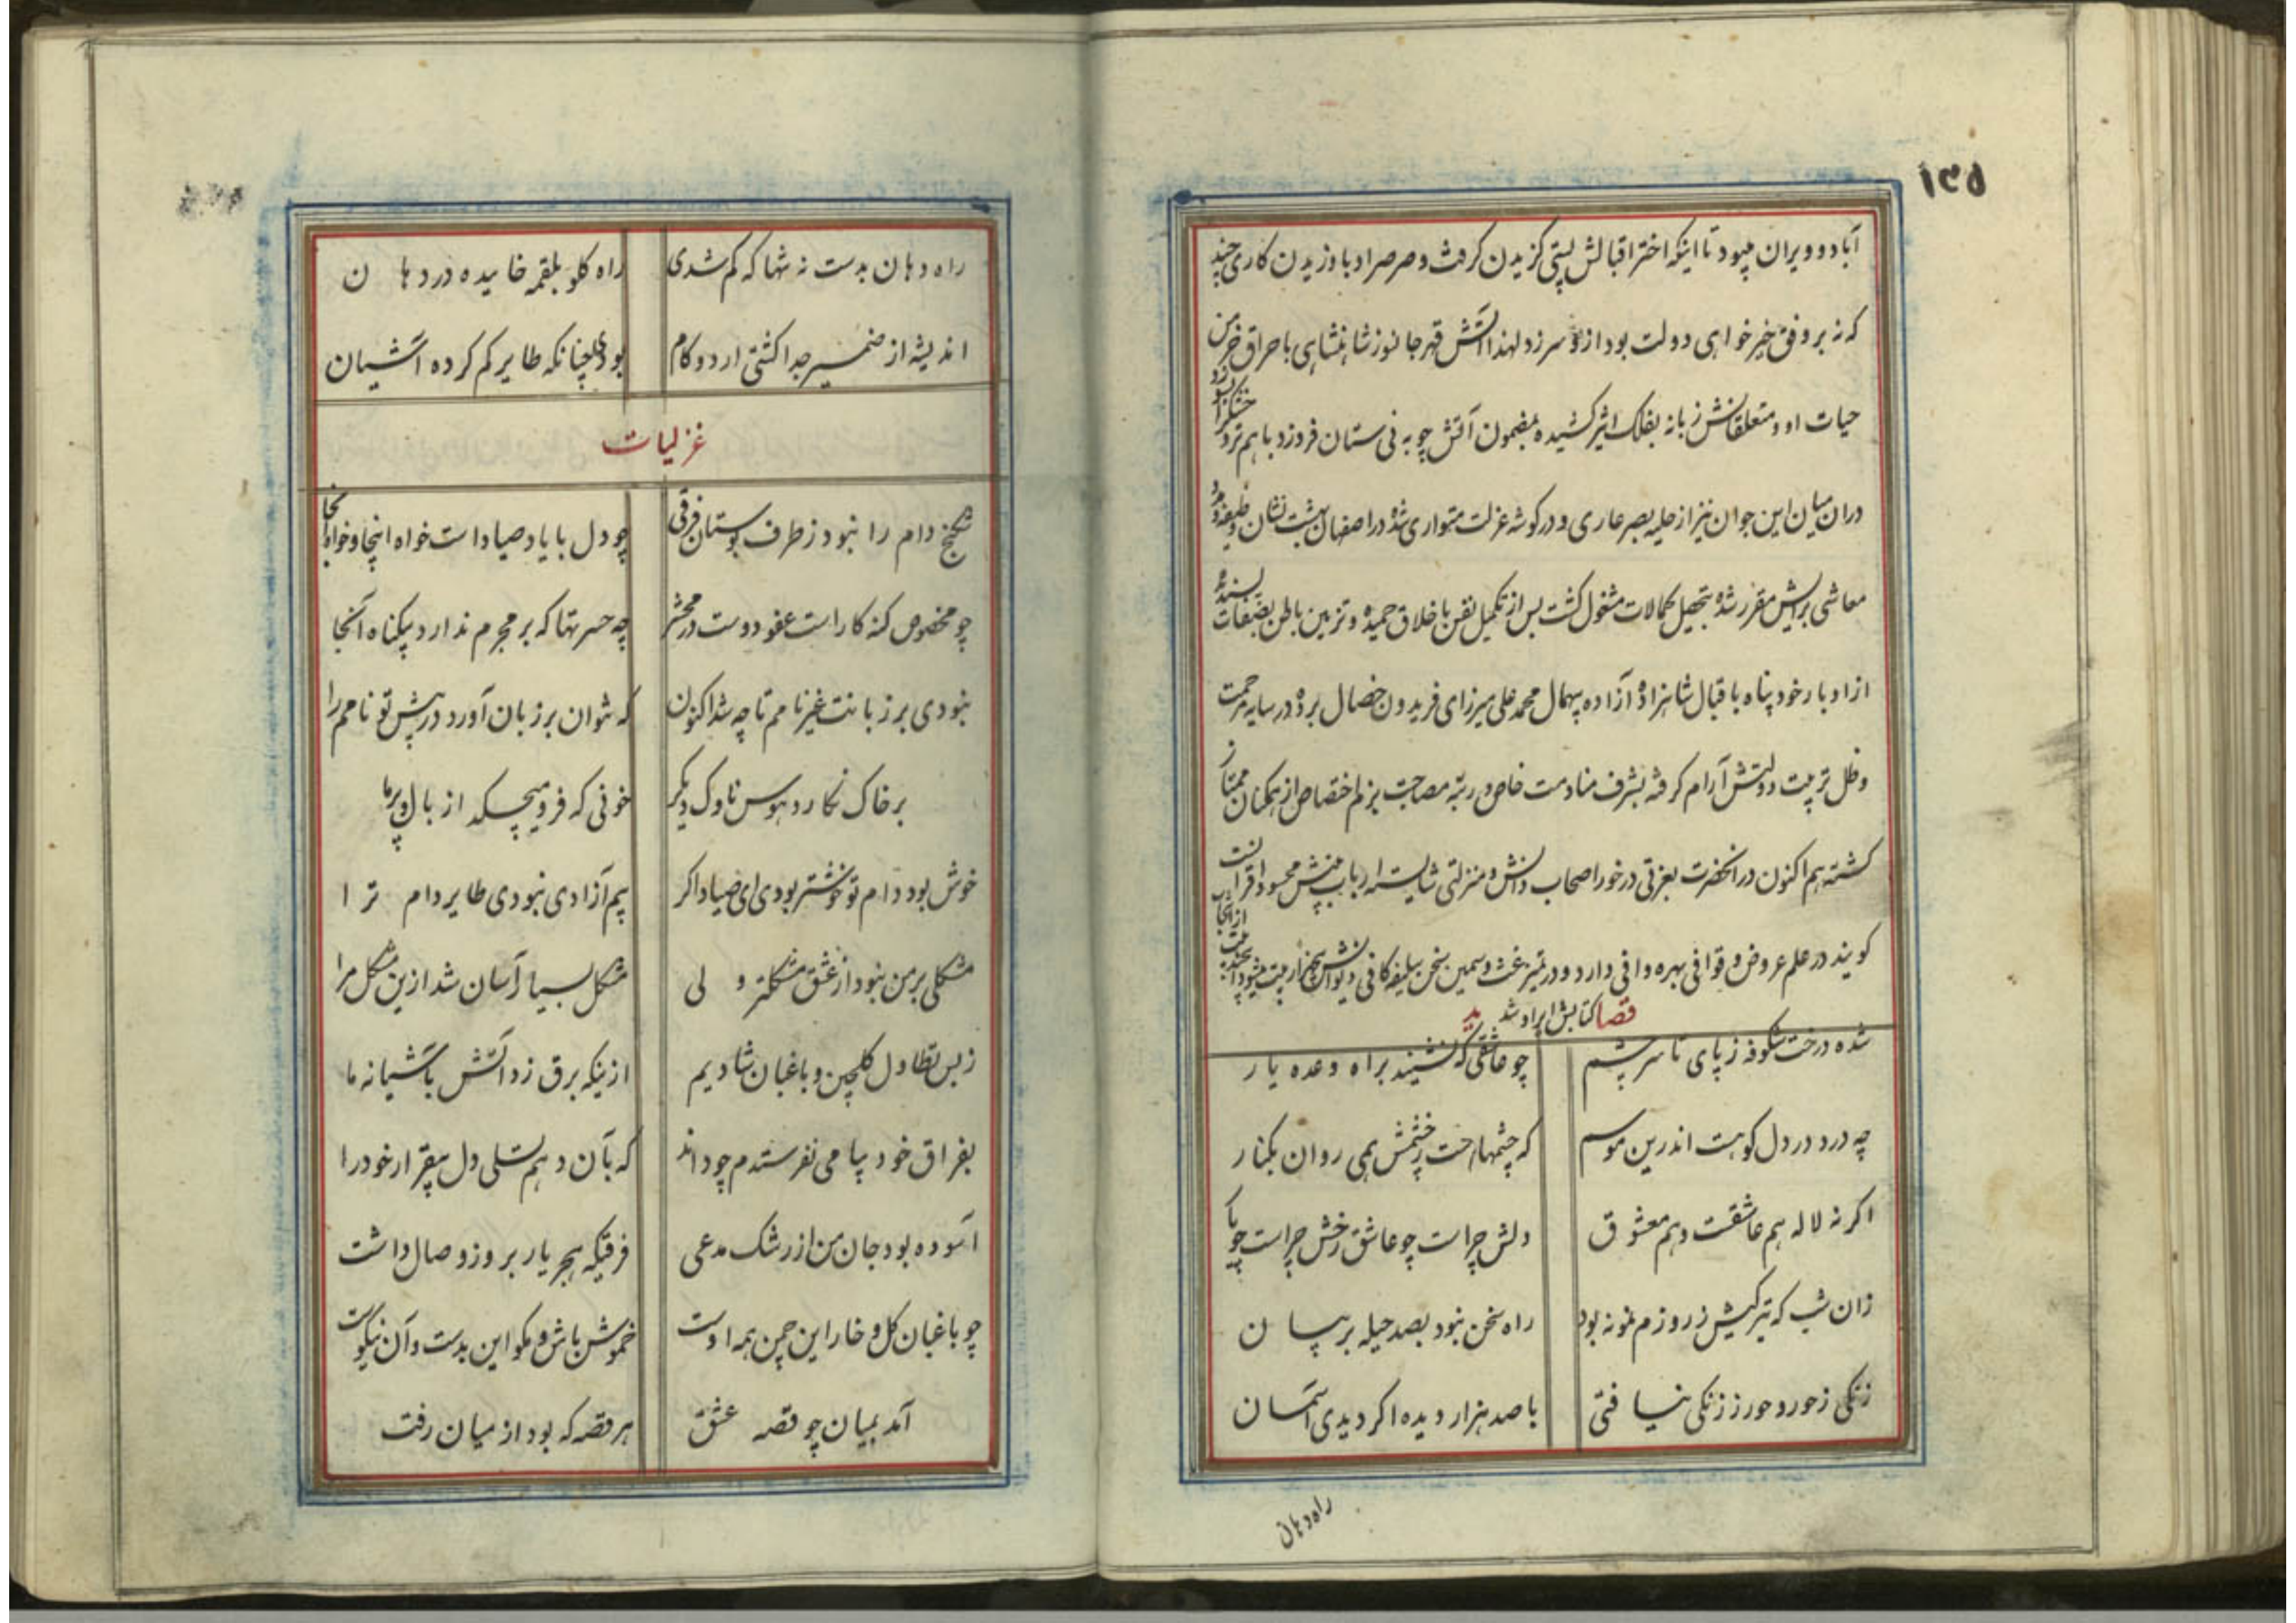 ۱۴۵
آباد و ویران میبود تا اینکه اختر اقبالش پستی گزیدن گرفت و صرصر ادبار وزیدن کاری چند
که نه بر وفق خیرخواهی دولت بود از او سر زد لهذا آتش قهر جانسوز شاهنشاهی باحراق خرمن
حیات او و متعلقانش زبانه بفلک اثیر کشیده بمضمون آتش چو به نی ستان فروزد با هم تر و خشک را بسوزد
دران میان این جوان نیز از حلیه بصر عاری و در گوشه عزلت متواری شده در اصفهان بهشت نشان وظیفه و مدد
معاشی برایش مقرر شده بتحصیل کمالات مشغول کشت پس از تکمیل نفس باخلاق حمیده و تزیین باطن بصفات پسندیده
از ادبار خود پناه باقبال شاهزاده آزاده بیهمال محمد علی میرزای فریدون خصال برده در سایه مرحمت
و ظل تربیت دولتش آرام گرفته بشرف منادمت خاص و رتبه مصاحبت بزم اختصاص از همکنان ممتاز
کشته هم اکنون در انحضرت بعزتی درخور اصحاب دانش و منزلتی شایسته ارباب بینش محسود اقرانست
کویند در علم عروض و قوافی بهره وافی دارد و در تمیز غث و سمین سخن سلیقه کافی دیوانش پنجهزار بیت میشود از آنجا
قصا کتابش ایراد شد ید
شده درخت شکوفه ز پای تا سر چشم	چو عاشقی که نشیند براه وعده یار
چه درد در دل کوهست اندرین موسم	که چشمهاست ز چشمش همی روان بکنار
اگر نه لاله هم عاشقست و هم معشوق	دلش چراست چو عاشق رخش چراست چو یار
زان شب که تیرگیش ز روزم نمونه بود	راه سخن نبود بصد حیله بر بیان
زنگی ز حور و حور ز زنگی نیافتی	با صد هزار دیده اگر دیدی آسمان
راه دهان
راه دهان بدست نه تنها که کم شدی	راه کلو بلقمه خاییده در دهان
اندیشه از ضمیر جدا کشتی ار دو کام	بودی چنانکه طایر کم کرده آشیان
غزلیات
شکنج دام را نبود ز طرف بوستان فرقی	چو دل با یاد صیاد است خواه اینجا و خواه آنجا
چو مخصوص کنه کار است عفو دوست در محشر	چه حسرتها که بر مجرم ندارد بیکناه آنجا
نبودی بر زبانت غیر نامم تا چه شد اکنون	که نتوان بر زبان آورد در پیش تو نامم را
بر خاک نکارد هوس ناوک دیگر	خونی که فرو میچکد از بال و پر ما
خوش بود دام تو خوشتر بودی ای صیاد اگر	بیم آزادی نبودی طایر دام ترا
مشکلی بر من نبود از عشق مشکلتر ولی	مشکل بسیار آسان شد ازین مشکل مرا
ز بس تطاول گلچین و باغبان شادیم	ازینکه برق زد آتش بآشیانه ما
بفراق خود پیامی نفرستدم چو داند	که بآن دهم تسلی دل بیقرار خود را
آسوده بود جان من از رشک مدعی	فرقیکه هجر یار بروز وصال داشت
چو باغبان کل و خار این چمن همه اوست	خموش باش و مکو این بدست و آن نیکوست
آمد بمیان چو قصه عشق	هر قصه که بود از میان رفت